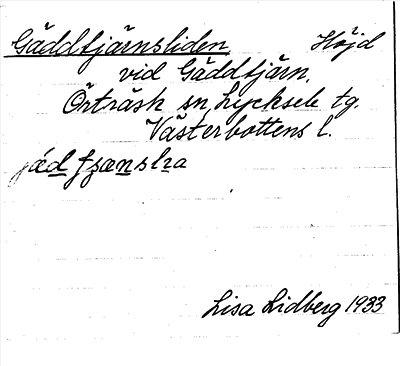 Gäddtjärnsliden Höjd
vid Gäddtjärn,
Örträsk sn, Lycksele tg.
Västerbottens l.
Lisa Lidberg 1933